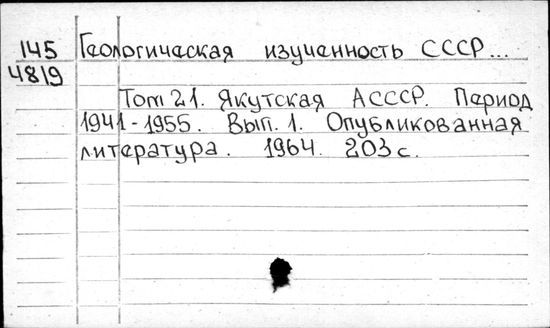 145 Геологическая изученность СССР...
4819
Том 21. Якутская АССР. Период
1941-1955. Вып. 1. Опубликованная
литература. 1964. 203 с.